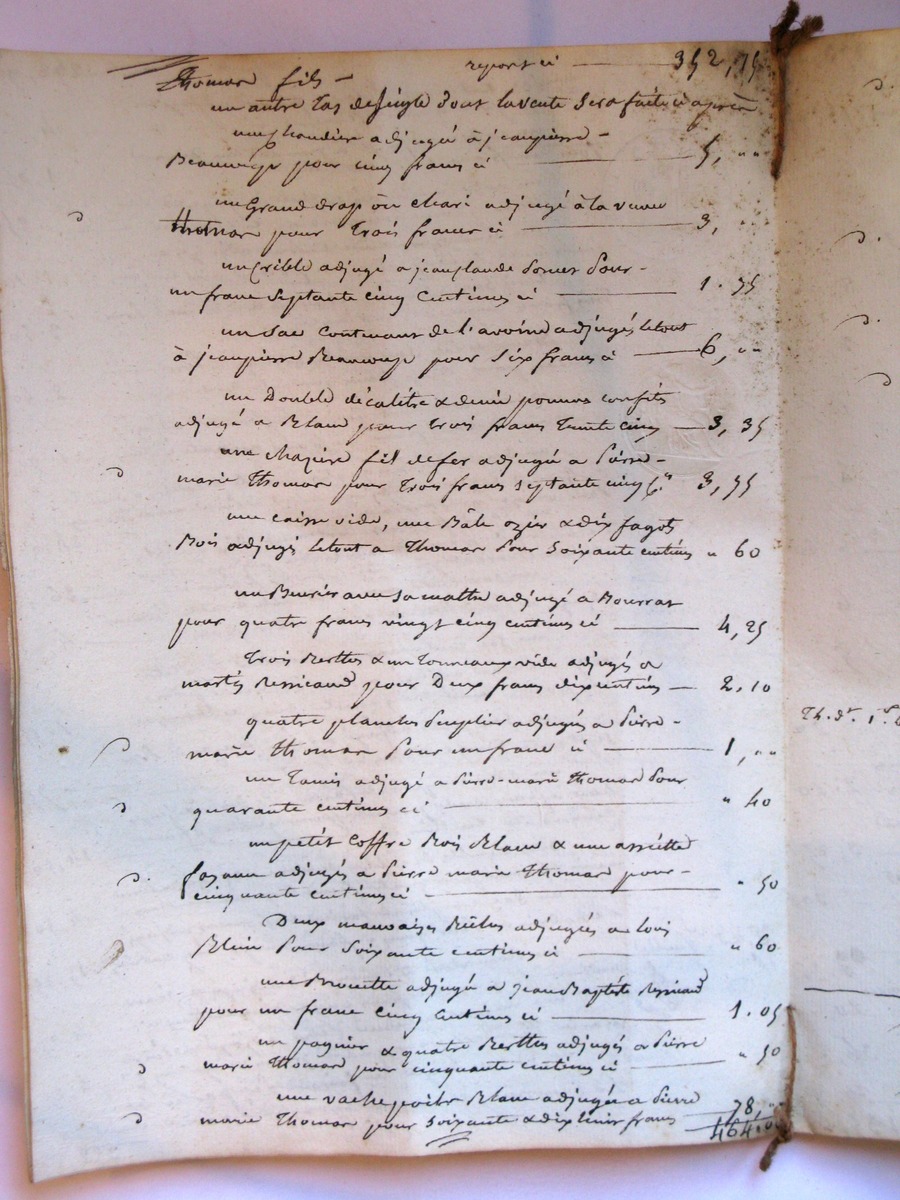 report ci 352,75
Thomas fils
un autre tas de seigle dont la vente sera faite ci après
une chaudière adjugé à jeanpierre
Beaucoup pour cinq francs ci 5, "
un Grand drap ou chari adjugé à la veuve
Thomas pour trois francs ci 3, "
un crible adjugé a jeanclaude pour
un franc septante cinq centimes ci 1.75
un sac contenant de l'avoine adjugés le tout
à jeanpierre pour six francs ci 6, "
un Double décalitre & demi pommes confits
adjugé a Blanc pour trois francs trente cinq 3,35
une fil de fer adjugée a Pierre
marie Thomas pour trois francs septante cinq c.es 3,75
une caisse vide, une ozier & dix fagots
Bois adjugés le tout a Thomas pour soixante centimes " 60
un Beurier avec sa adjugé a Bourrat
pour quatre francs vingt cinq centimes ci 4,25
trois & un tonneaux vide adjugés a
pour Deux francs dix centimes 2,10
quatre planches peuplier adjugées a Pierre
marie Thomas pour un franc ci 1, "
un Tamis adjugé a Pierre-marie Thomas pour
quarante centimes ci " 40
un petit Coffre Bois Blanc & une assiette
adjugés a Pierre marie Thomas pour
cinquante centimes ci " 50
Deux mauvaises adjugées a
pour soixante centimes ci " 60
une Brouette adjugée a jean Baptiste
pour un franc cinq centimes ci 1.05
un pagnier & quatre adjugés a Pierre
marie Thomas pour cinquante centimes ci " 50
une vache poils Blanc adjugée a Pierre
marie Thomas pour soixante & dix huit francs 78, "
464.00